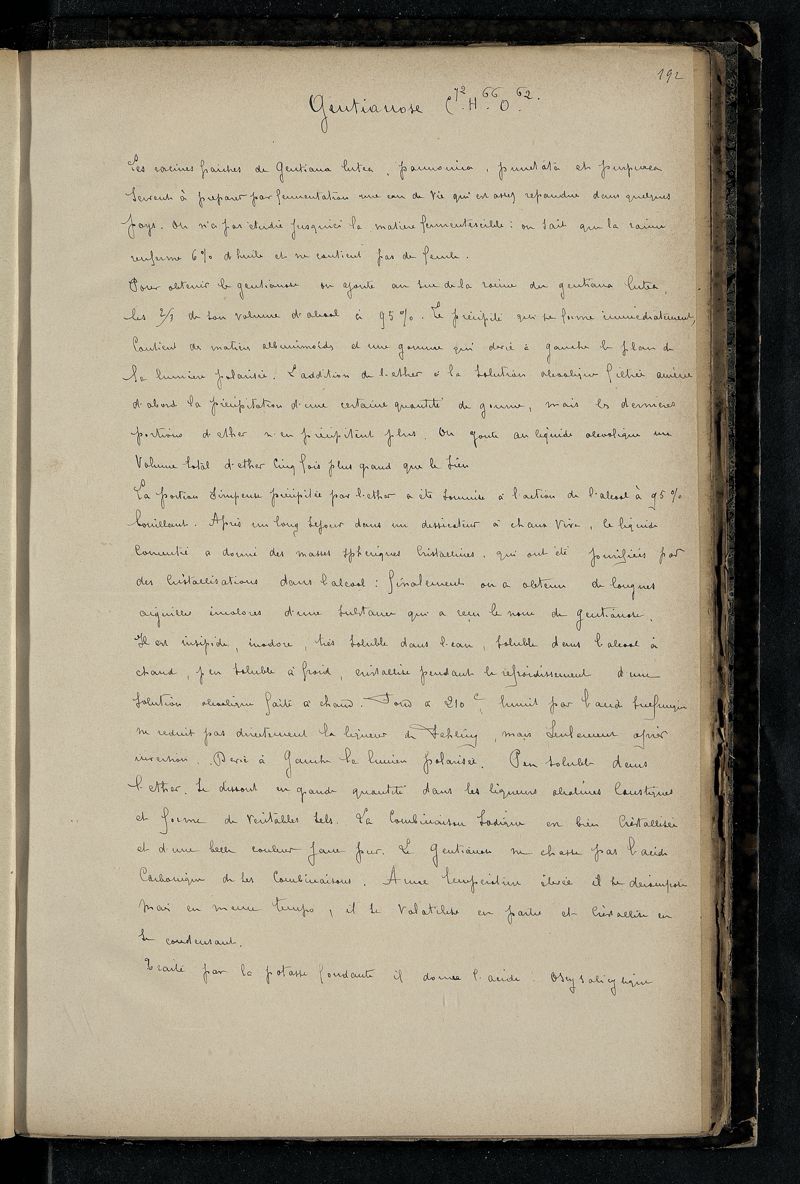 192
Gentianose C⁷².H⁶⁶.O⁶².
Les racines fraiches de Gentiana lutea, pannonica, punctata et purpurea
servent à preparer par fermentation une eau de vie qui est assez repandue dans quelques
pays. On n'a pas etudié jusqu'ici la matiere fermentescible : on sait que la racine
renferme 6% d'huile et ne contient pas de fecule.
Pour obtenir le gentianose on ajoute au suc de la racine du gentiana lutea,
les 2/3 de son volume d'alcool à 95%. Le précipité qui se forme immédiatement,
contient des matieres albuminoïds et une gomme qui devie à gauche le plan de
la lumière polarisée. L'addition de l'ether à la solution alcoolique filtrée amène
d'abord la précipitation d'une certaine quantité de gomme, mais les dernieres
portions d'ether n'en précipitent plus. On ajoute au liquide alcoolique un
volume total d'ether cinq fois plus grand que le sien
La portion sirupeuse précipitée par l'ether a été soumise à l'action de l'alcool à 95%
bouillant. Après un long sejour dans un dessicateur à chaux vive, le liquide
concentré a donné des masses sphériques cristallines, qui ont été purifiées par
des cristallisations dans l'alcool : finalement on a obtenu de longues
aiguilles incolores d'une substance qui a reçu le nom de gentianose.
Il est insipide, inodore, très soluble dans l'eau, soluble dans l'alcool à
chaud, peu soluble à froid, cristallise pendant le refroidissement d'une
solution alcoolique faite à chaud. Fond à 210°, brunit par l'acid sulfurique
ne reduit pas directement la liqueur de Fehling, mais seulement après
inversion. Devie à Gauche la lumiere polarisée. Peu soluble dans
l'ether. Se dissout en grande quantité dans les liqueurs alcalines caustiques
et forme de veritables sels. La Combinaison sodique en bien cristallisée
et d'une belle couleur jaune pur. Le Gentianose ne chasse pas l'acide
Carbonique de ses Combinaisons. A une température élevée il se decompose
mais en meme temps, il se volatilise en partie et cristallise en
se condensant.
Traité par la potasse fondante il donne l'acide oxysalicylique